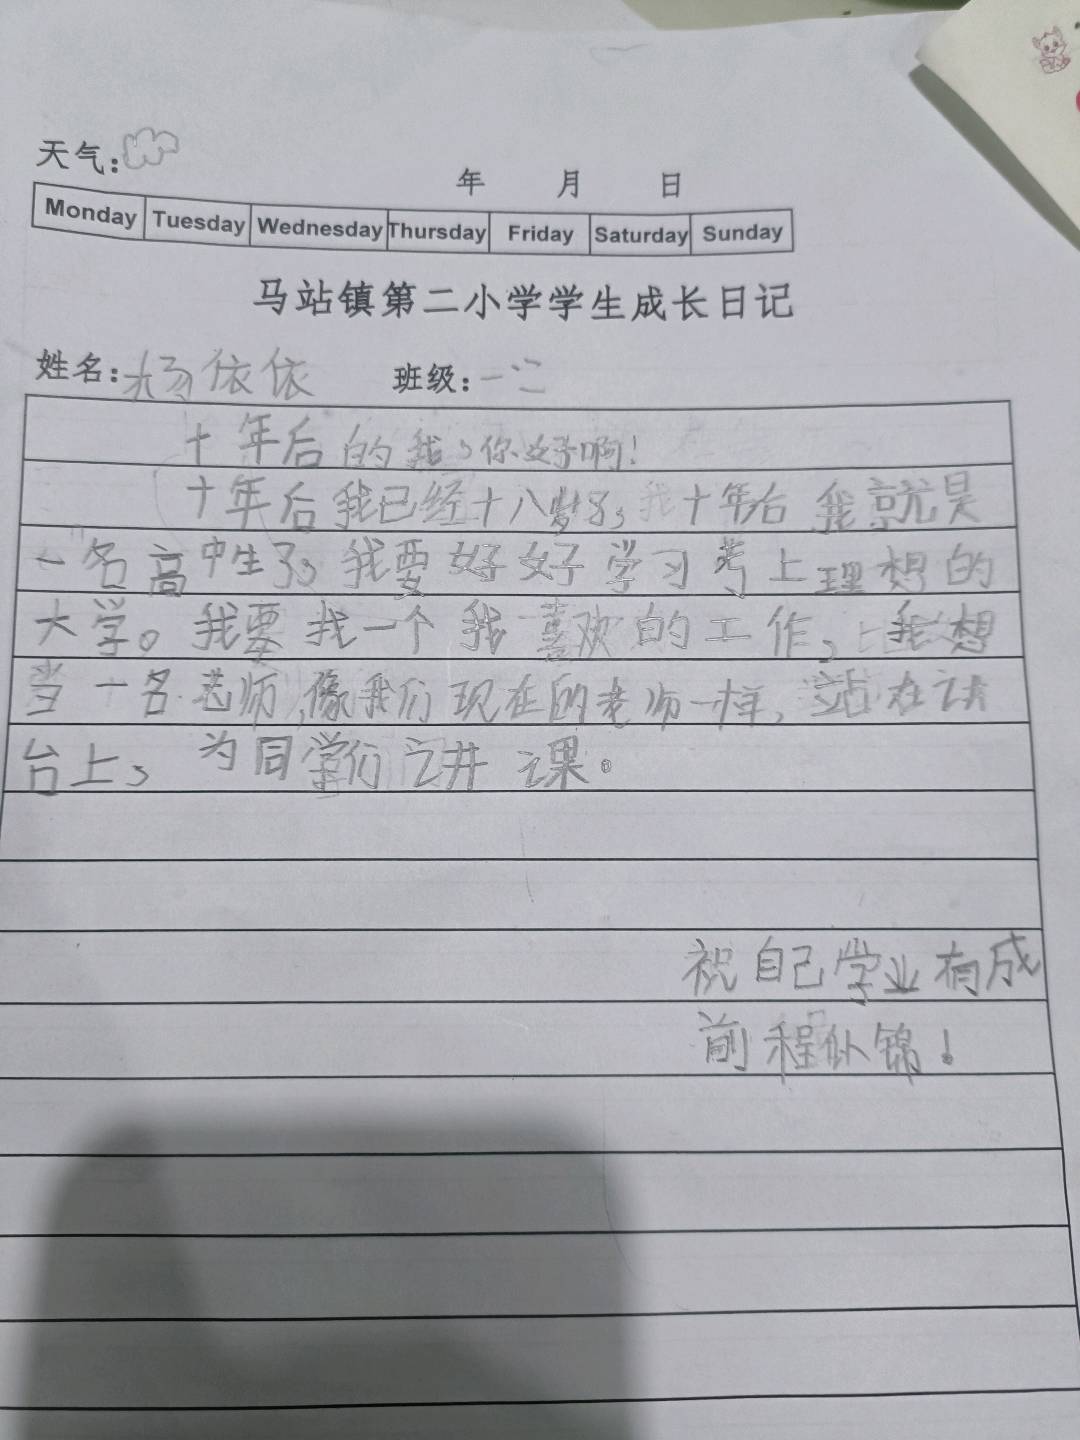 天气：
年 月 日
Monday Tuesday Wednesday Thursday Friday Saturday Sunday
马站镇第二小学学生成长日记
姓名：杨依依 班级：
十年后的我，你好啊！
十年后我已经十八岁了，我十年后我就是
一名高中生了，我要好好学习考上理想的
大学。我要找一个我喜欢的工作，我想
当一名老师，像我们现在的老师一样，站在讲
台上，为同学们讲课。
祝自己学业有成
前程似锦！